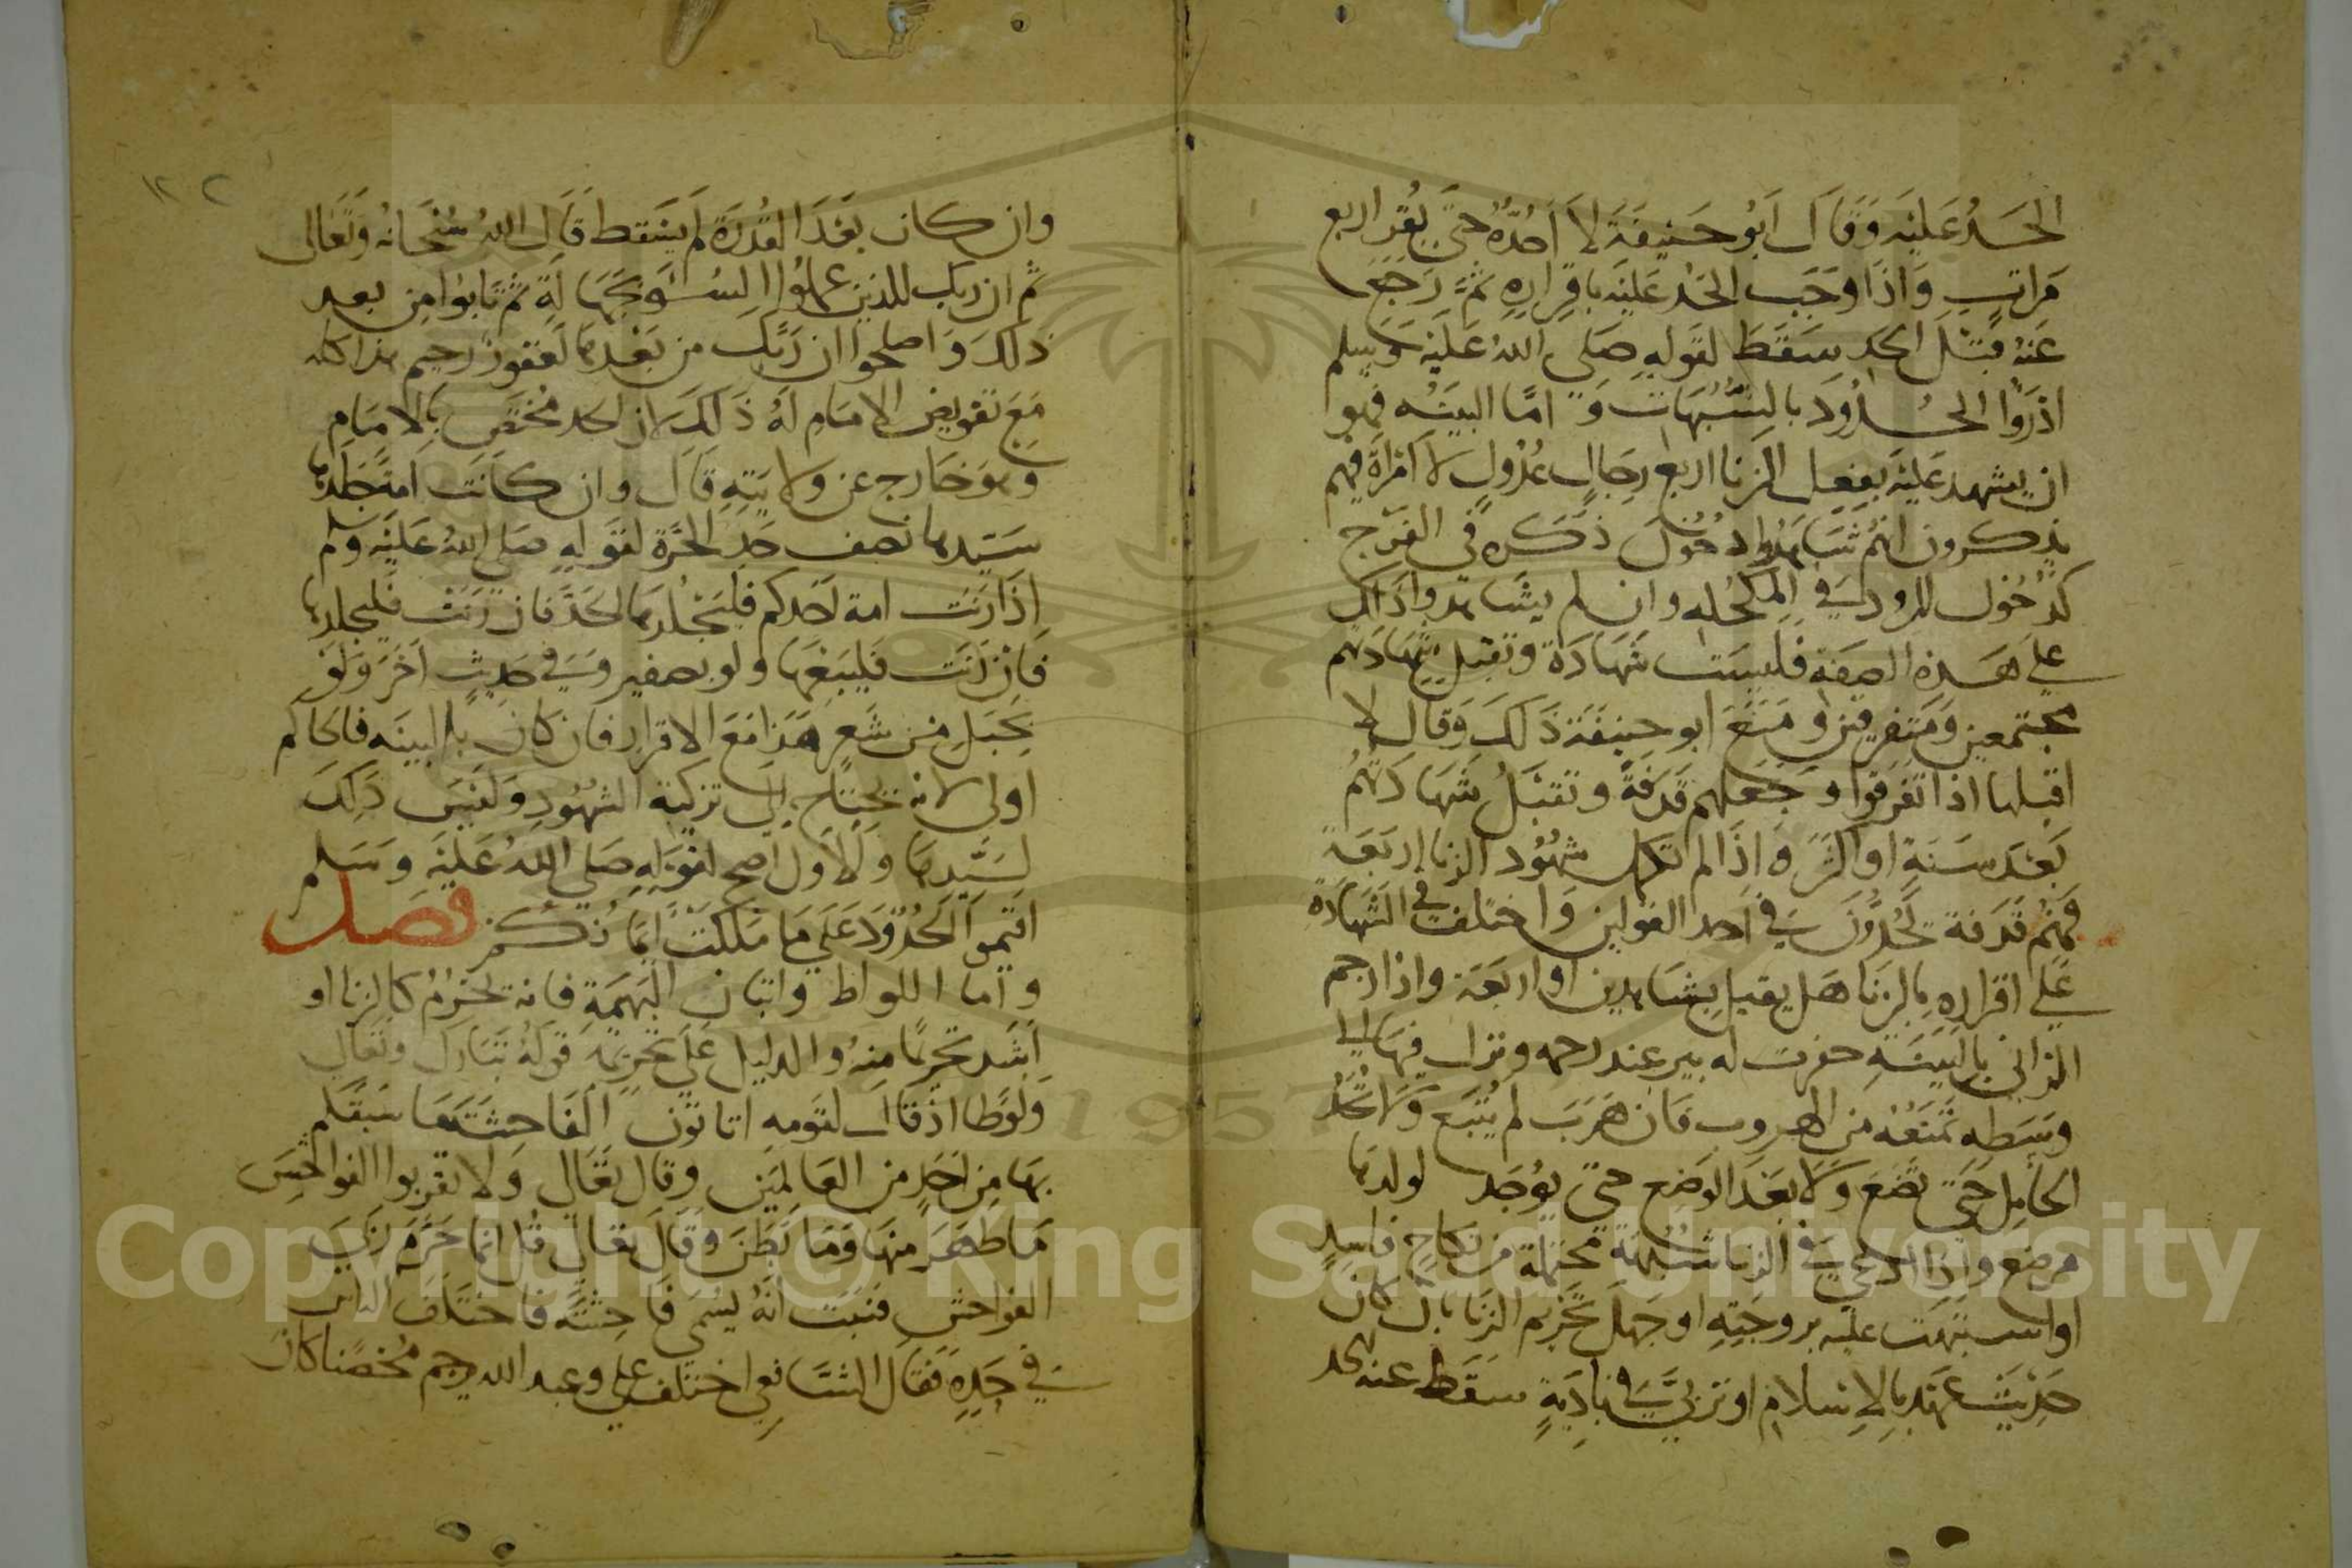 الحَد عَليْه وَقَال اَبُو حَنيفَة لاَ اَحُدّهُ حتَّى يُقر اربع
مَراتٍ وَاذَا وَجَب الحَد عَليْه باقرَارهِ ثمَّ رَجع
عَنهُ قَبْل الحد سَقَط لقَولهِ صَلى اللهُ عَليْه وَسلم
ادْرَوُا الحُدُودَ بالشُّبُهَات وَ امَّا البينَه فهوا
ان يشهد عَليْه بفعِل الزنا اربع رجَال عدُولٍ لا امْرَأة فيهم
يذكرون انهُم شَاهَدُوا دخُول ذكَره في الفَرْج
كدُخُول المرود في المكْحُله وان لم يشَاهدوا ذَلك
على هَذه الصفَة فليسَت شَهَادَة وتقبَل شهَادَتهم
مجتمعين وَمتفرقين وَمَنَعَ ابو حنيفَة ذَلكَ وَقال لا
اقبلها اذا تفَرقوا وَجَعَلهم قَذفَةً وتقبَلُ شَهَادَتهُم
بَعْدَ سَنَة او اكثر وَاذَا لم تكمل شهُود الزنا اربَعَة
فَهُم قَذَفة يُحَدُّونَ في اَحد القولين وَاختلفَ في الشهَادَة
عَلى اقرارهِ بالزنَا هَل يقبل بشَاهدين او اربَعَة واذا رجم
الزاني بالبينَةِ حفرت له بير عند رجمه ونزل فيهَا الى
وسَطه تمنَعُهُ من الهروب فَان هَرَبَ لم يُتْبَع وَلا تحدُّ
الحَامِل حَتى تضَعَ وَلا بَعْدَ الوَضع حتى يوُجَد لولدهَا
مرضع وَاذا ادعى في الزنا شُبْهَة محتملة من نكَاحٍ فاسِدٍ
او اسبتهَت عليْه بزوجَتِهِ او جَهلَ تحْريم الزنَا بان كان
حَدِيْثَ عَهْد بالاِسْلام او تربَّى في بَادِيَةٍ سَقَط عنه الحد
١٢٢
وان كان بَعْدَ القُدرَة لم يسْقط قَال اللهُ سُبْحَانهُ وَتَعَالى
ثم ان ربك للذين عملُوا السُّوءَ بجَهَالَةٍ ثم تَابوُا من بعد
ذَلكَ وَاصلحوا ان رَبّكَ من بَعْدهَا لغفورٌ رحيم هذا كله
مَعَ تفويض الامَام لهُ ذَلكَ لان الحد مُختَص بالامَامِ
وهوَ خَارج عن ولايَتِهِ قال وان كانَت امَة جَلدهَا
سَيّدهَا نصف حَد الحرَّة لقَولهِ صَلى اللهُ عَليْه وَسلم
اِذَا زَنَت امة احَدكم فليَجْلدهَا الحَدَّ فان زَنَت فليجلدهَا
فَان زَنَت فَليَبعْهَا ولو بضفير وَفي حَديثٍ آخَر وَلَو
بحَبَلٍ من شَعرٍ هَذا مَعَ الاقرار فان كان بالبينَه فالحَاكم
اولى لانه يحتَاج الى تزكية الشهُودِ وَليْسَ ذَلكَ
لسَيّدهَا وَالاَول اصح لقَولهِ صَلى اللهُ عَليْه وَسَلم
اقيموا الحُدُودَ عَلى مَا مَلَكَتْ ايمَانُكُم فصل
وَاَما اللواط واتيَان البَهيمَةِ فانه يحْرُمُ كالزنا او
اَشَد تحْريمًا مِنهُ والدليل عَلى تحريمهِ قولهُ تبَارك وتعَالى
وَلوُطا اذ قال لقَومهِ اتاتون الفَاحِشَة مَا سَبَقَكم
بهَا مِن احَدٍ من العَالمين وقال تعَالى وَلا تقربوا الفواحش
مَا ظَهَرَ مِنهَا وَمَا بَطَنَ وقَالَ تعَالى قُل انما حَرَّمَ رَبّيَ
الفواحش فثبَت انهُ يسُمى فاحِشَةً فاختَلفَ الناس
في حَدِهِ فقال الشَافعي اختلف علي وعبد الله يرجم مُحْصَنا كان
Copyright © King Saud University
1957